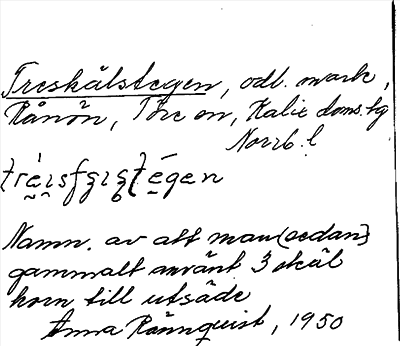 Treskälstegen, odl. mark,
Rånön, Töre sn, Kalix doms. tg
Norrb. l
Namn. av att man (sedan)
gammalt använt 3 skäl
korn till utsäde
Anna Rönnquist, 1950